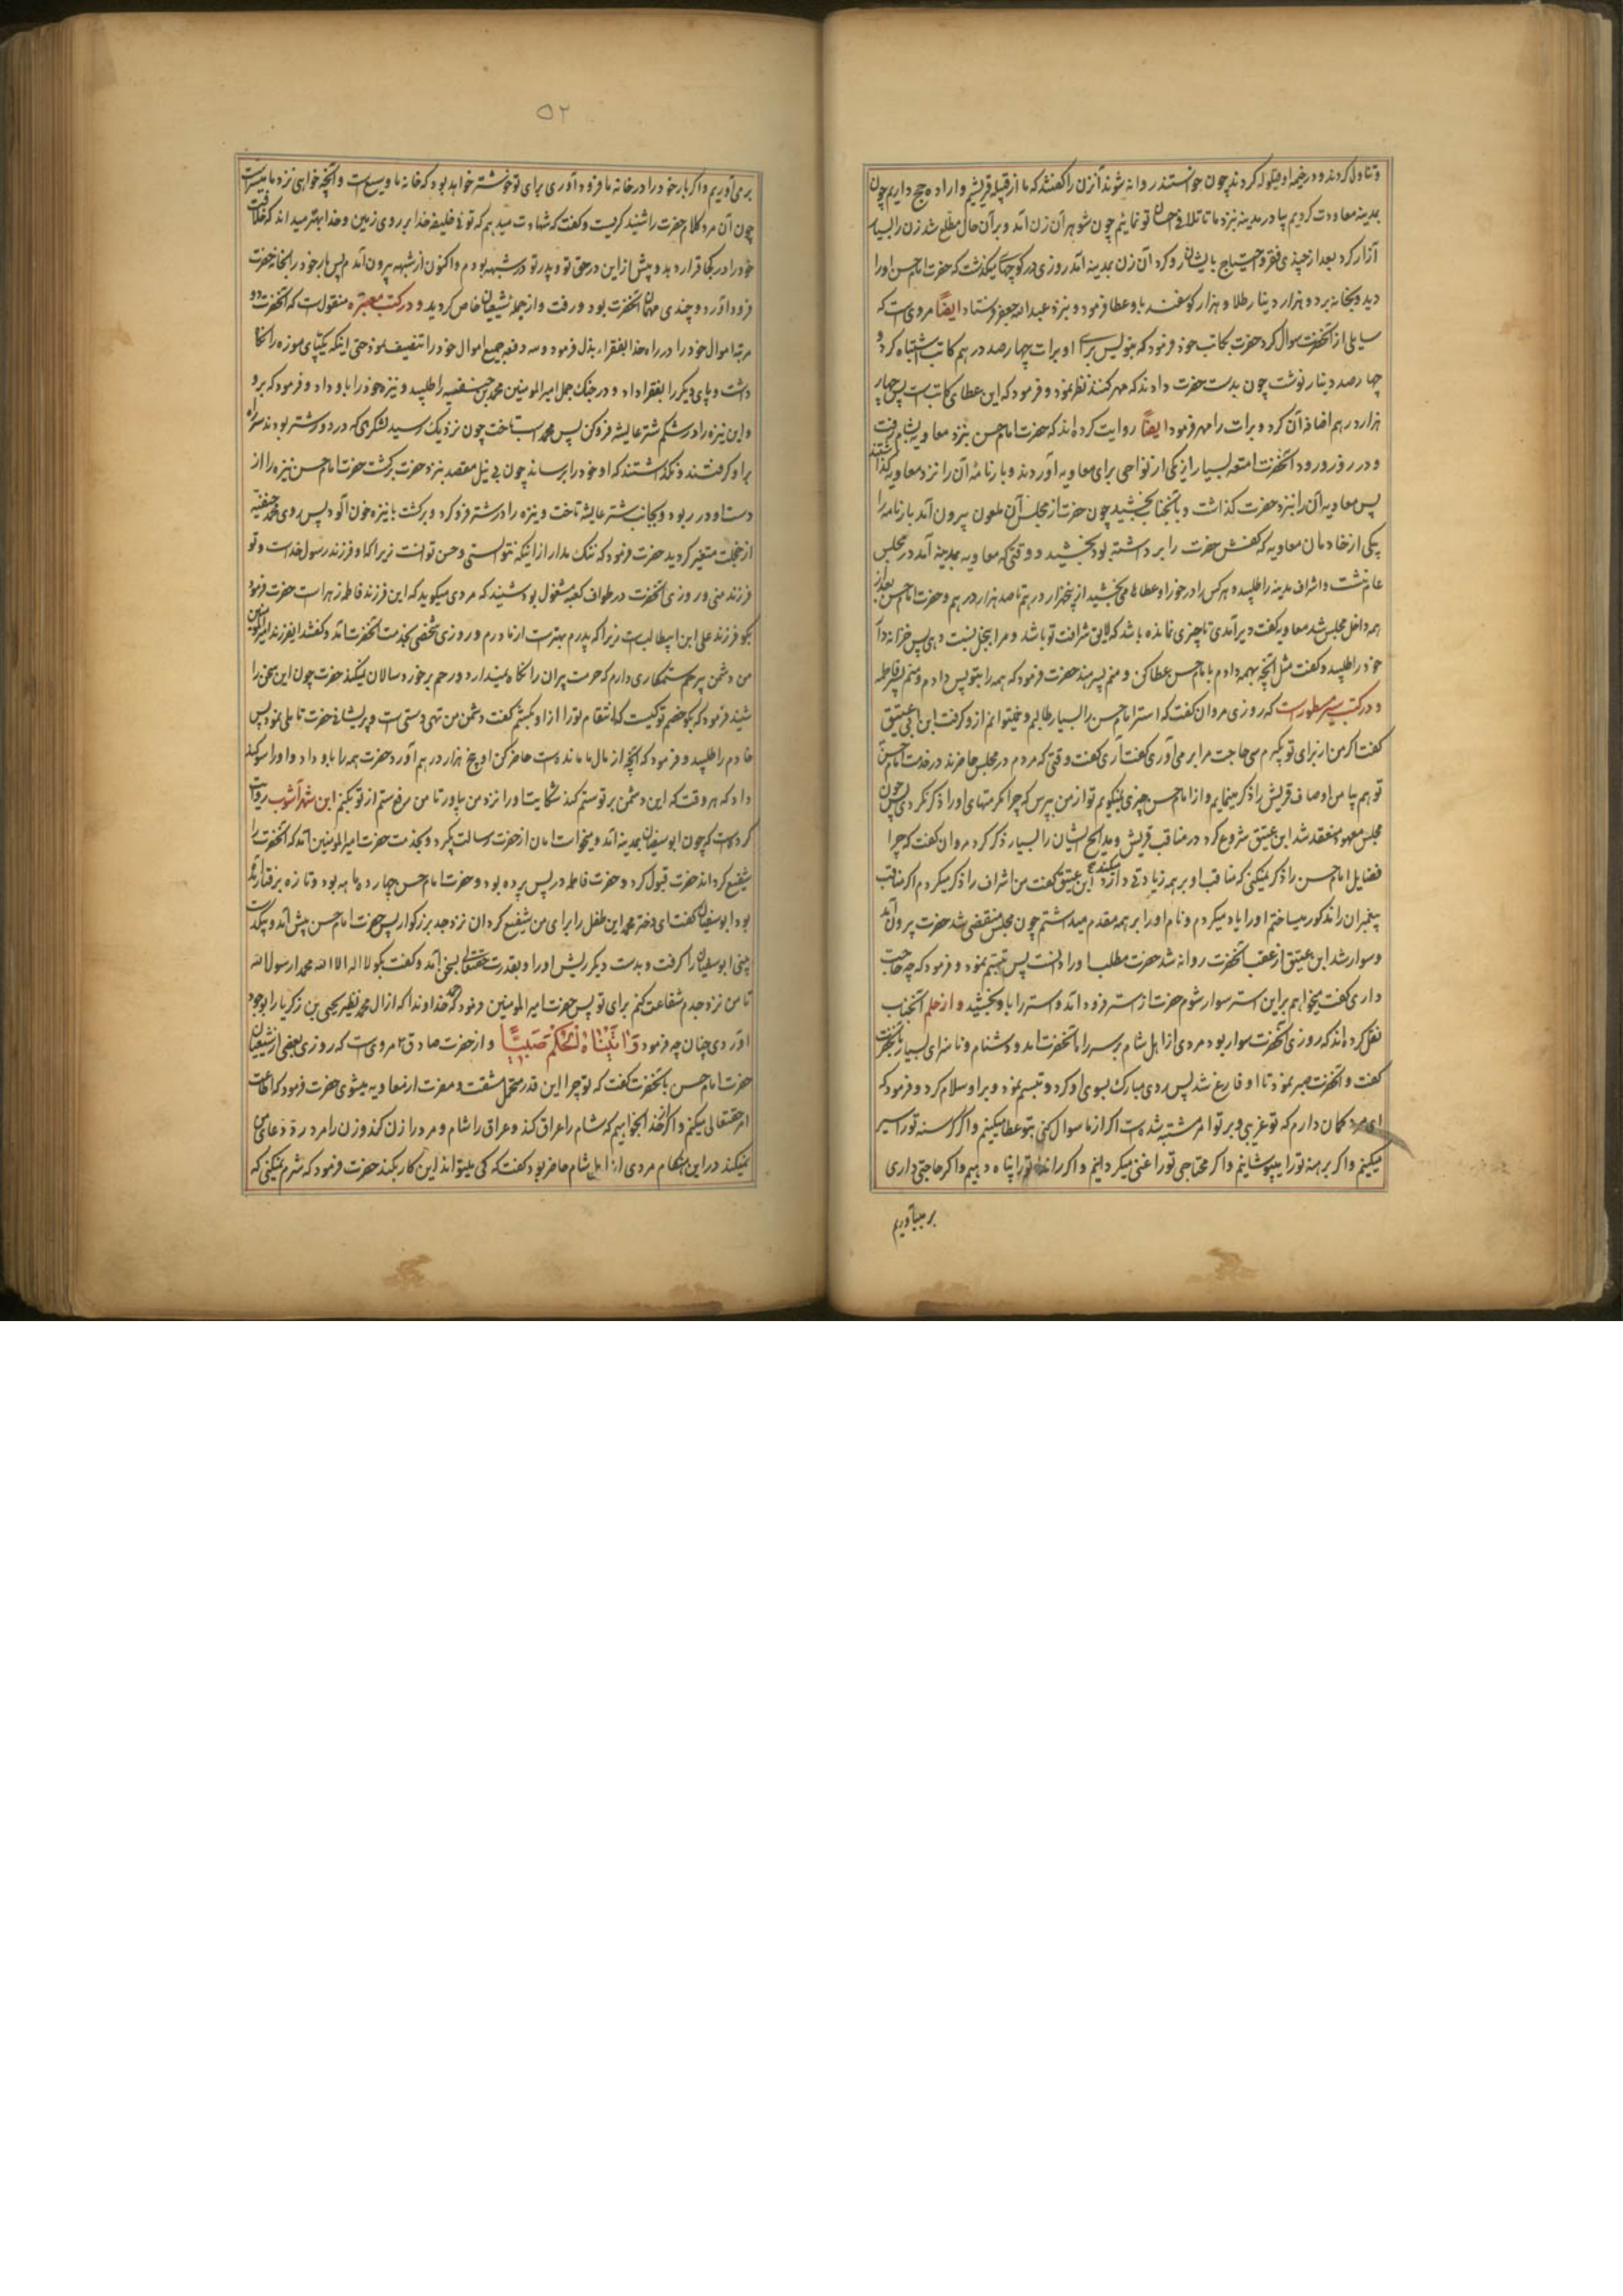 و تناول کردند و در خیمه او قیلوله کردند چون خواستند روانه شوند آنزن را گفتند که ما از قبیله قریشیم و اراده حج داریم چون
بمدینه معاودت کردیم بیا در مدینه بنزد ما تا تلافی احسان تو نمائیم چون شوهر آن زن آمد و بر آن حال مطلع شد زن را بسیار
آزار کرد بعد از چندی فقر و احتیاج بایشان رو کرد آن زن بمدینه آمد روزی در کوچهای میگذشت که حضرت امام حسن او را
دید و بخانه برد و هزار دینار طلا و هزار کوسفند باو عطا فرمود و بنزد عبدالله جعفر فرستاد ایضاً مروی است که
سایلی از آنحضرت سوال کرد حضرت بکاتب خود فرمود که بنویس برای او برات چهارصد درهم کاتب اشتباه کرد و
چهارصد دینار نوشت چون بدست حضرت دادند که مهر کنند نظر نمود و فرمود که این عطای کاتب است پس چهار
هزار درهم اضافه آن کرد و برات را مهر فرمود ایضاً روایت کرده اند که حضرت امام حسن بنزد معاویه بشام رفت
و در روز ورود آنحضرت امتعه بسیار از یکی از نواحی برای معاویه آوردند و بارنامه آن را نزد معاویه گذاشتند
پس معاویه آن را بنزد حضرت گذاشت و بآنجناب بخشید چون حضرت از مجلس آن ملعون بیرون آمد بارنامه را
بیکی از خادمان معاویه که کفش حضرت را برداشته بود بخشید و وقتی که معاویه بمدینه آمد در مجلس
عام نشست و اشراف مدینه را طلبید و هر کس را در خور او عطاها می بخشید از پنجهزار درهم تا صد هزار درهم و حضرت امام حسن بعد از
همه داخل مجلس شد معاویه گفت دیر آمدی تا چیزی نمانده باشد که لایق شرافت تو باشد و مرا بخیل نسبت دهی پس خزانه دار
خود را طلبید و گفت مثل آنچه بهمه دادم بامام حسن عطا کن و منم پسر هند حضرت فرمود که همه را بتو پس دادم و منم پسر فاطمه
و در کتب سیر مسطور است که روزی مروان گفت که استر امام حسن را بسیار طالبم و نمیتوانم از او گرفت ابن ابی عتیق
گفت اگر من از برای تو بگیرم سی حاجت مرا بر می آوری گفت آری گفت وقتی که مردم در مجلس حاضرند در خدمت امام حسن
تو هم بیا من اوصاف قریش را ذکر مینمایم و از امام حسن چیزی نمیگویم تو از من بپرس که چرا مکرمتهای او را ذکر نکردی پس چون
مجلس معهود منعقد شد ابن عتیق شروع کرد در مناقب قریش و مدایح ایشان را بسیار ذکر کرد مروان گفت که چرا
فضایل امام حسن را ذکر نمیکنی که مناقب او بر همه زیادتی دارد ابن عتیق گفت من اشراف را ذکر میکردم اگر مناقب
پیغمبران را مذکور میساختم او را یاد میکردم و نام او را بر همه مقدم میداشتم چون مجلس منقضی شد حضرت بیرون آمد
و سوار شد ابن عتیق از عقب آنحضرت روانه شد حضرت مطلب او را دانست پس تبسم نمود و فرمود که چه حاجت
داری گفت میخواهم بر این استر سوار شوم حضرت از استر فرود آمد و استر را باو بخشید و از حلم آنجناب
نقل کرده اند که روزی آنحضرت سوار بود مردی از اهل شام بر سر راه آنحضرت آمد و دشنام و ناسزای بسیار بآنحضرت
گفت و آنحضرت صبر نمود تا او فارغ شد پس روی مبارک بسوی او کرد و تبسم نمود و بر او سلام کرد و فرمود که
ای مرد گمان دارم که تو غریبی و بر تو امر مشتبه شده است اگر از ما سوال کنی بتو عطا میکنیم و اگر گرسنه تو را سیر
میکنیم و اگر برهنه تو را میپوشانیم و اگر محتاجی تو را غنی میگردانیم و اگر رانده تو را پناه دهیم و اگر حاجتی داری
بر میآوریم
۵۲
بر می آوریم و اگر بار خود را در خانه ما فرود آوری برای تو خوشتر خواهد بود که خانه ما وسیع است و آنچه خواهی نزد ما میسر است
چون آن مرد کلام حضرت را شنید گریست و گفت که شهادت میدهم که توئی خلیفه خدا بر روی زمین و خدا بهتر میداند که خلافت
خود را در کجا قرار دهد و پیش از این در حق تو و پدر تو در شبهه بودم و اکنون از شبهه بیرون آمدم پس بار خود را بخانه حضرت
فرود آورد و چندی مهمان آنحضرت بود و رفت و از جمله شیعیان خاص گردید و در کتب معتبره منقول است که آنحضرت دو
مرتبه اموال خود را در راه خدا بفقراء بذل فرمود و سه دفعه جمیع اموال خود را تنصیف نمود حتی اینکه یکپای موزه را نگاه
داشت و پای دیگر را بفقرا داد و در جنگ جمل امیر المومنین محمد بن حنفیه را طلبید و نیزه خود را باو داد و فرمود که برو
و این نیزه را در شکم شتر عایشه فرو کن پس محمد اسب تاخت چون نزدیک رسید لشکری که در دور شتر بودند سر راه
بر او گرفتند و نگذاشتند که او خود را برساند چون بی نیل مقصد بنزد حضرت برگشت حضرت امام حسن نیزه را از
دست او در ربود و بجانب شتر عایشه تاخت و نیزه را در شتر فرو کرد و برگشت با نیزه خون آلود پس روی محمد حنفیه
از خجلت متغیر گردید حضرت فرمود که ننگ مدار از اینکه نتوانستی و حسن توانست زیرا که او فرزند رسول خداست و تو
فرزند منی و روزی آنحضرت در طواف کعبه مشغول بود شنید که مردی میگوید که این فرزند فاطمه زهرا است حضرت فرمود
بگو فرزند علی ابن ابیطالب است زیرا که پدرم بهتر است از مادرم و روزی شخصی بخدمت آنحضرت آمد و گفت ایفرزند امیر المومنین
من دشمن بیرحم ستمکاری دارم که حرمت پیران را نگاه نمیدارد و رحم بر خورد سالان نمیکند حضرت چون این سخن را
شنید فرمود که بگو خصم تو کیست که انتقام تو را از او بکشم گفت دشمن من تهی دستی است و پریشانی حضرت تاملی نمود پس
خادم را طلبید و فرمود که آنچه از مال ما مانده است حاضر کن او پنج هزار درهم آورد حضرت همه را باو داد و او را سوگند
داد که هر وقت که این دشمن بر تو ستم کند شکایت او را نزد من بیاور تا من رفع ستم از تو بکنم ابن شهر آشوب روایت
کرده است که چون ابوسفیان بمدینه آمد و میخواست امان از حضرت رسالت بگیرد و بخدمت حضرت امیر المومنین آمد که آنحضرت را
شفیع گرداند حضرت قبول نکرد و حضرت فاطمه در پس پرده بود و حضرت امام حسن چهارده ماهه بود و تازه برفتار آمده
بود ابوسفیان گفت ای دختر محمد این طفل را برای من شفیع گردان نزد جد بزرگوار پس حضرت امام حسن پیش آمد و بیکدست
بینی ابوسفیان را گرفت و بدست دیگر ریش او را و بقدرت حقتعالی بسخن آمد و گفت بگو لا اله الا الله محمد رسول الله
تا من نزد جدم شفاعت کنم برای تو پس حضرت امیر المومنین فرمود که حمد خداوندا که از ال محمد نظیر یحیی بن زکریا را بوجود
آوردی چنان چه فرمود وَاٰتَیْنَاهُ الْحُکْمَ صَبِیًّا و از حضرت صادق ۴ مروی است که روزی بعضی از شیعیان
حضرت امام حسن بآنحضرت گفت که تو چرا این قدر متحمل مشقت و مضرت از معاویه میشوی حضرت فرمود که اطاعت
امر حقتعالی میکنم و اگر از خدا بخواهیم که شام را عراق کند و عراق را شام و مرد را زن کند و زن را مرد رد دعای ما
نمیکند در این هنگام مردی از اهل شام حاضر بود گفت که کی میتواند این کار بکند حضرت فرمود که شرم نمیکنی که